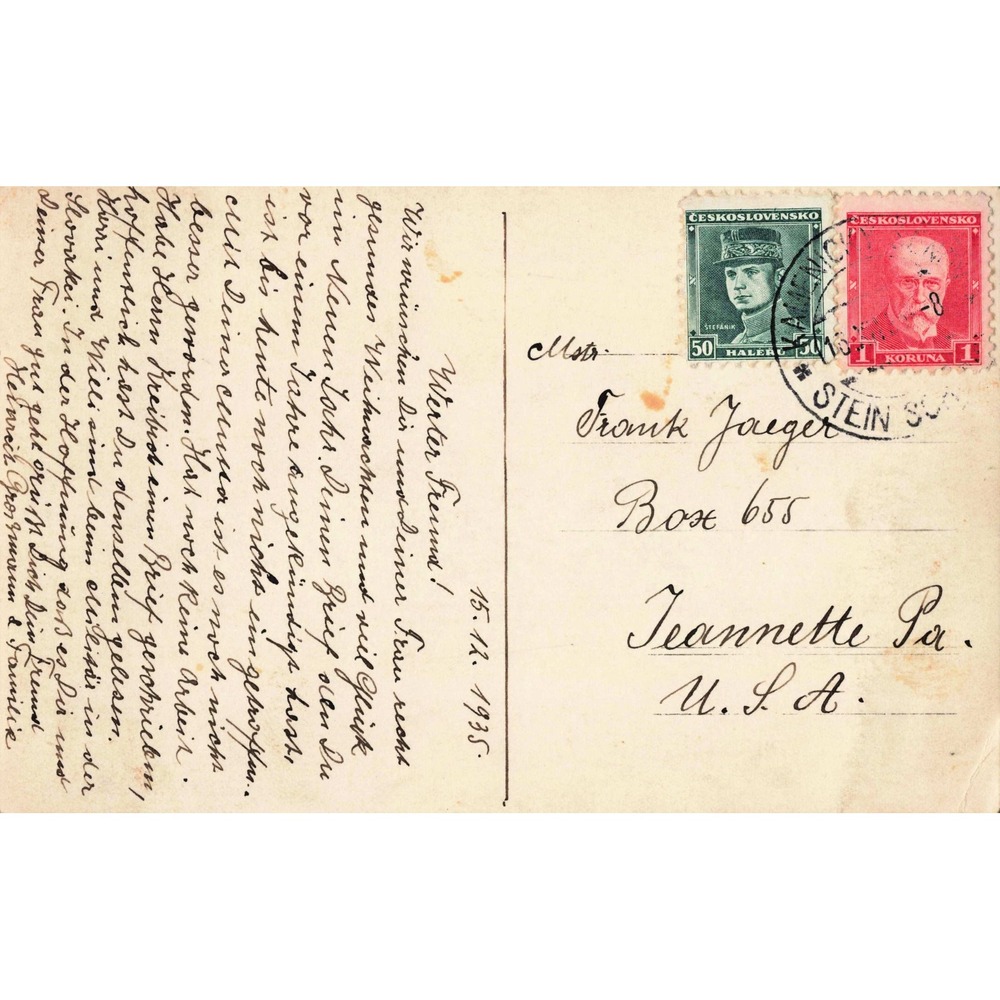 15.12.1935.
Werter Freund!
Wir wünschen Dir und Deiner Frau recht
gesundes Weihnachten und viel Glück
im Neuen Jahr. Deinen Brief den Du
vor einem Jahre angekündigt hast,
ist bis heute noch nicht eingetroffen.
Mit Deiner Muss ist es noch nicht
besser geworden. Hat noch keine Arbeit.
Habe Herrn Kreibich einen Brief geschrieben,
hoffentlich hast Du denselben gelesen.
Harri und Willi sind beim Militär in der
Slovakei. In der Hoffnung daß es Dir und
Deiner Frau gut geht grüßt Dich Dein Freund
Heinrich Großmann & Familie
ČESKOSLOVENSKO
ŠTEFÁNIK
50 HALÉŘŮ 50
ČESKOSLOVENSKO
1 KORUNA 1
STEIN
Mstr.
Frank Jaeger
Box 655
Jeannette Pa.
U. S. A.